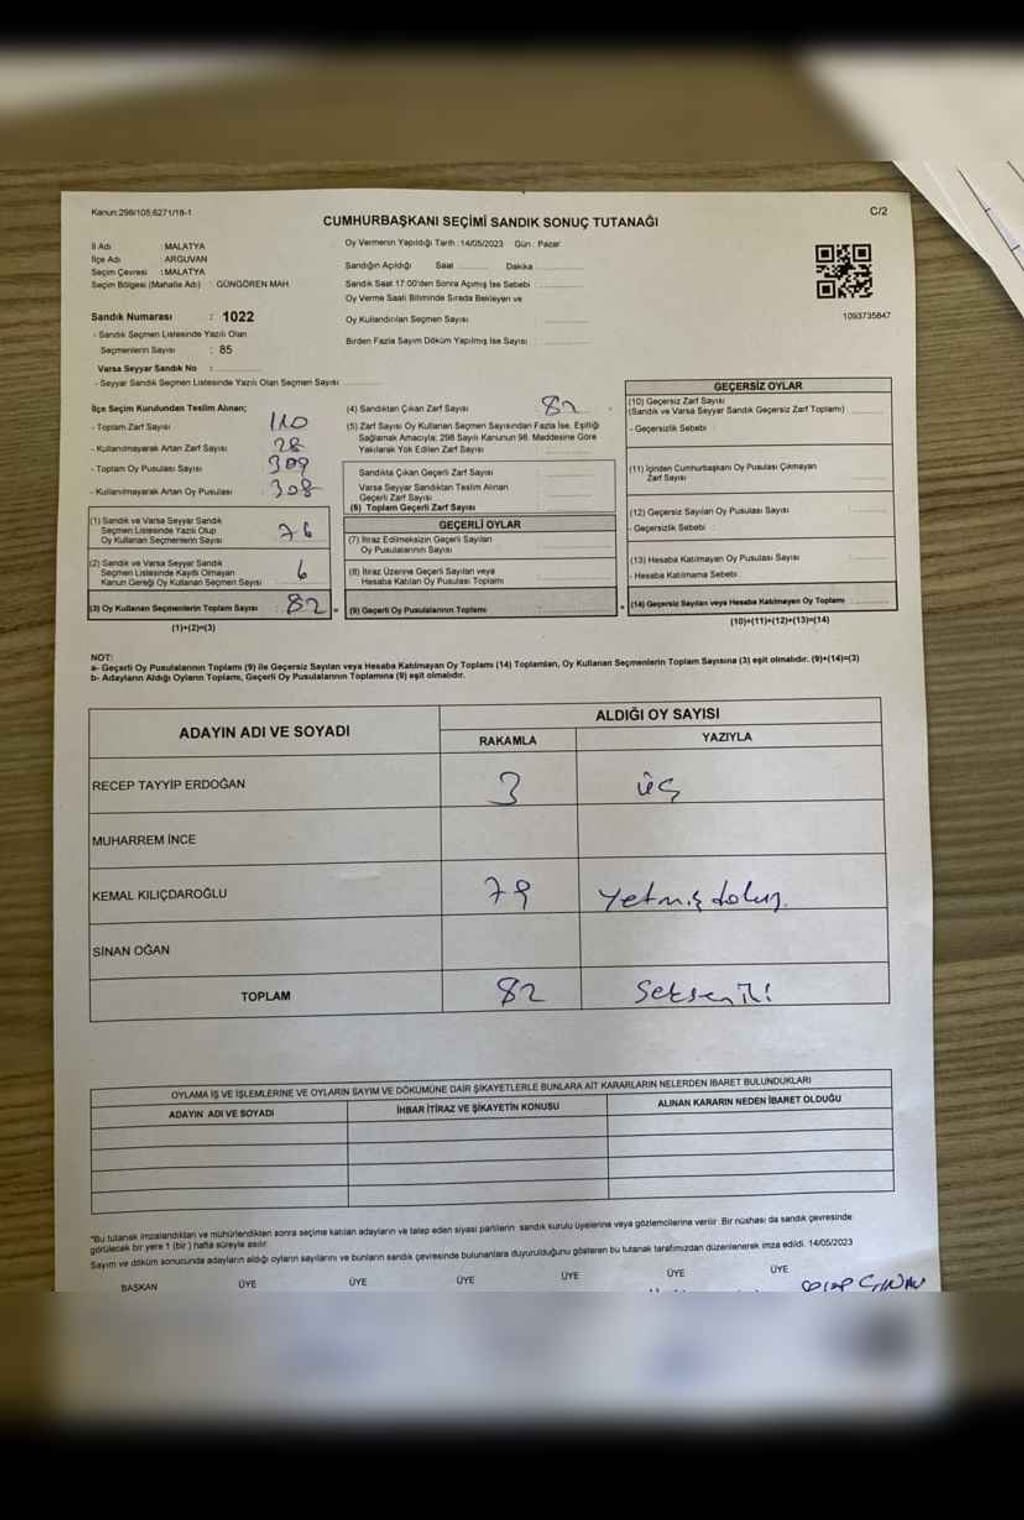 Kanun:298/105;6271/18-1
C/2
CUMHURBAŞKANI SEÇİMİ SANDIK SONUÇ TUTANAĞI
İl Adı : MALATYA
İlçe Adı : ARGUVAN
Seçim Çevresi : MALATYA
Seçim Bölgesi (Mahalle Adı) : GÜNGÖREN MAH.
Sandık Numarası : 1022
- Sandık Seçmen Listesinde Yazılı Olan
Seçmenlerin Sayısı : 85
Varsa Seyyar Sandık No :
- Seyyar Sandık Seçmen Listesinde Yazılı Olan Seçmen Sayısı
Oy Vermenin Yapıldığı Tarih : 14/05/2023 Gün : Pazar
Sandığın Açıldığı Saat Dakika
Sandık Saat 17.00'den Sonra Açılmış İse Sebebi :
Oy Verme Saati Bitiminde Sırada Bekleyen ve
Oy Kullandırılan Seçmen Sayısı
Birden Fazla Sayım Döküm Yapılmış İse Sayısı :
1093735847
İlçe Seçim Kurulundan Teslim Alınan;
- Toplam Zarf Sayısı : 110
- Kullanılmayarak Artan Zarf Sayısı : 28
- Toplam Oy Pusulası Sayısı : 309
- Kullanılmayarak Artan Oy Pusulası : 308
(1) Sandık ve Varsa Seyyar Sandık
Seçmen Listesinde Yazılı Olup
Oy Kullanan Seçmenlerin Sayısı 76
(2) Sandık ve Varsa Seyyar Sandık
Seçmen Listesinde Kaydı Olmayan
Kanun Gereği Oy Kullanan Seçmen Sayısı 6
(3) Oy Kullanan Seçmenlerin Toplam Sayısı : 82 =
(1)+(2)=(3)
(4) Sandıktan Çıkan Zarf Sayısı 82
(5) Zarf Sayısı Oy Kullanan Seçmen Sayısından Fazla İse, Eşitliği
Sağlamak Amacıyla; 298 Sayılı Kanunun 98. Maddesine Göre
Yakılarak Yok Edilen Zarf Sayısı
Sandıkta Çıkan Geçerli Zarf Sayısı
Varsa Seyyar Sandıktan Teslim Alınan
Geçerli Zarf Sayısı
(6) Toplam Geçerli Zarf Sayısı
GEÇERLİ OYLAR
(7) İtiraz Edilmeksizin Geçerli Sayılan
Oy Pusulalarının Sayısı
(8) İtiraz Üzerine Geçerli Sayılan veya
Hesaba Katılan Oy Pusulası Toplamı
(9) Geçerli Oy Pusulalarının Toplamı
GEÇERSİZ OYLAR
(10) Geçersiz Zarf Sayısı
(Sandık ve Varsa Seyyar Sandık Geçersiz Zarf Toplamı)
- Geçersizlik Sebebi :
(11) İçinden Cumhurbaşkanı Oy Pusulası Çıkmayan
Zarf Sayısı
(12) Geçersiz Sayılan Oy Pusulası Sayısı
- Geçersizlik Sebebi :
(13) Hesaba Katılmayan Oy Pusulası Sayısı
- Hesaba Katılmama Sebebi :
(14) Geçersiz Sayılan veya Hesaba Katılmayan Oy Toplamı
(10)+(11)+(12)+(13)=(14)
NOT:
a- Geçerli Oy Pusulalarının Toplamı (9) ile Geçersiz Sayılan veya Hesaba Katılmayan Oy Toplamı (14) Toplamları, Oy Kullanan Seçmenlerin Toplam Sayısına (3) eşit olmalıdır. (9)+(14)=(3)
b- Adayların Aldığı Oyların Toplamı, Geçerli Oy Pusulalarının Toplamına (9) eşit olmalıdır.
ADAYIN ADI VE SOYADI
ALDIĞI OY SAYISI
RAKAMLA YAZIYLA
RECEP TAYYİP ERDOĞAN 3 üç
MUHARREM İNCE
KEMAL KILIÇDAROĞLU 79 Yetmiş dokuz
SİNAN OĞAN
TOPLAM 82 Seksen iki
OYLAMA İŞ VE İŞLEMLERİNE VE OYLARIN SAYIM VE DÖKÜMÜNE DAİR ŞİKAYETLERLE BUNLARA AİT KARARLARIN NELERDEN İBARET BULUNDUKLARI
ADAYIN ADI VE SOYADI İHBAR İTİRAZ VE ŞİKAYETİN KONUSU ALINAN KARARIN NEDEN İBARET OLDUĞU
"Bu tutanak imzalandıktan ve mühürlendikten sonra seçime katılan adayların ve talep eden siyasi partilerin sandık kurulu üyelerine veya gözlemcilerine verilir. Bir nüshası da sandık çevresinde
görülecek bir yere 1 (bir) hafta süreyle asılır.
Sayım ve döküm sonucunda adayların aldığı oyların sayılarını ve bunların sandık çevresinde bulunanlara duyurulduğunu gösteren bu tutanak tarafımızdan düzenlenerek imza edildi. 14/05/2023
BAŞKAN ÜYE ÜYE ÜYE ÜYE ÜYE ÜYE